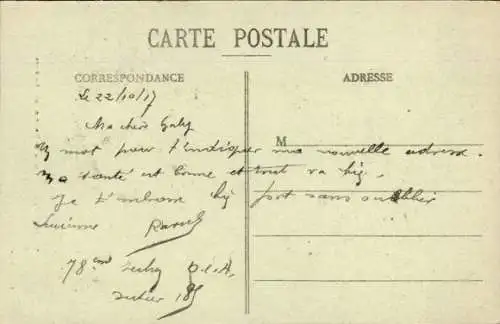 CARTE POSTALE
CORRESPONDANCE
ADRESSE
Le 22/10/17
Ma chère Gaby
M
un mot pour t'indiquer ma nouvelle adresse.
Ma santé est bonne et tout va
Je t'embrasse fort sans oublier
Raoul
78eme